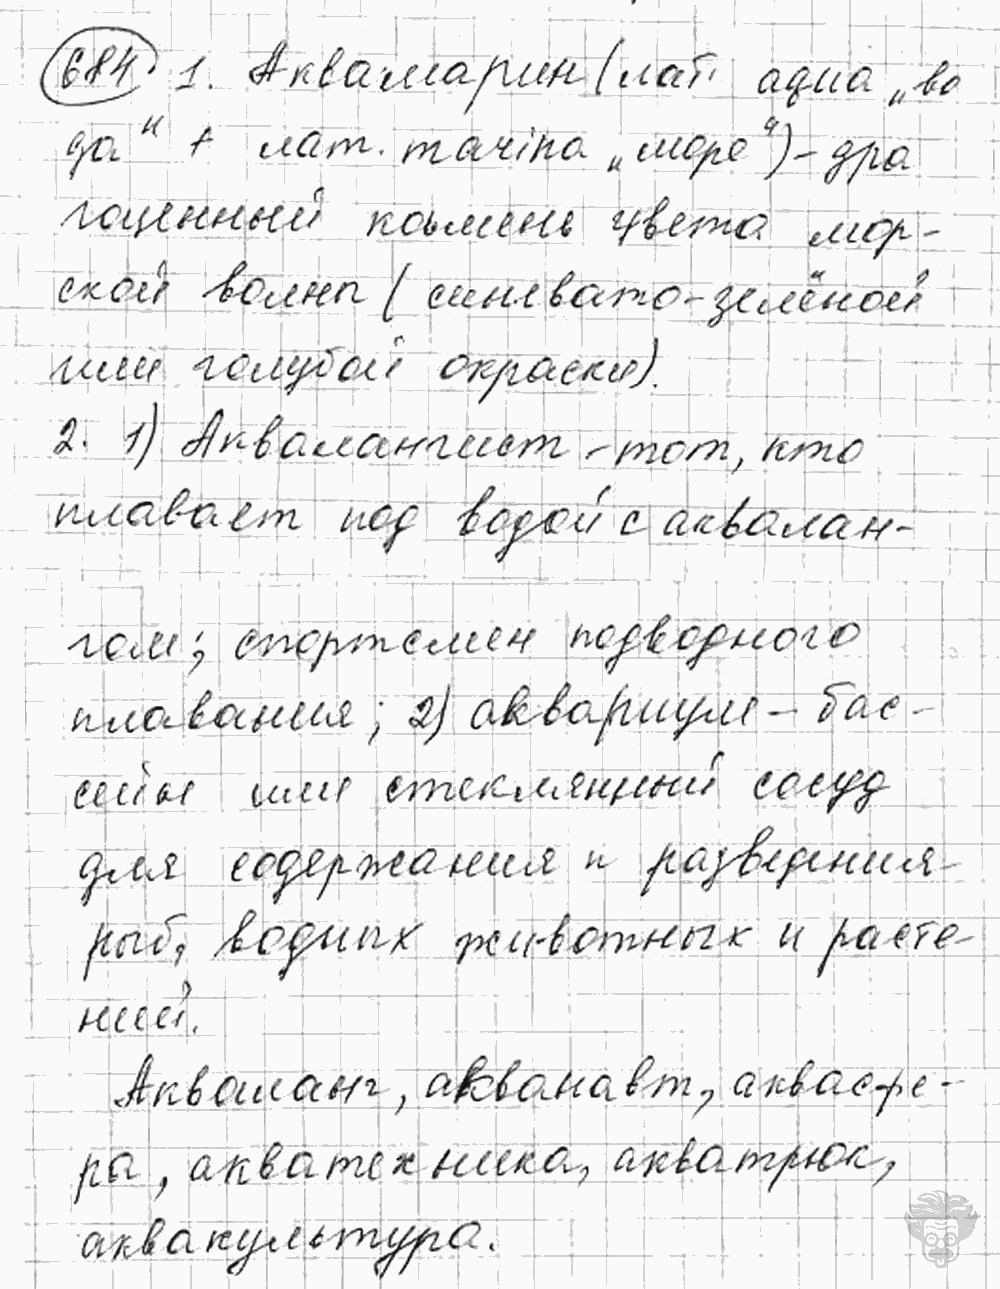 684. 1. Аквамарин (лат. aqua „во
да" + лат. marina „море") – дра
гоценный камень цвета мор-
ской волны (синевато-зелёной
или голубой окраски).
2. 1) Аквалангист – тот, кто
плавает под водой с аквалан-
гом; спортсмен подводного
плавания; 2) аквариум – бас-
сейн или стеклянный сосуд
для содержания и разведения
рыб, водных животных и расте-
ний.
Акваланг, акванавт, аквасфе-
ра, акватехника, акватрюк,
аквакультура.